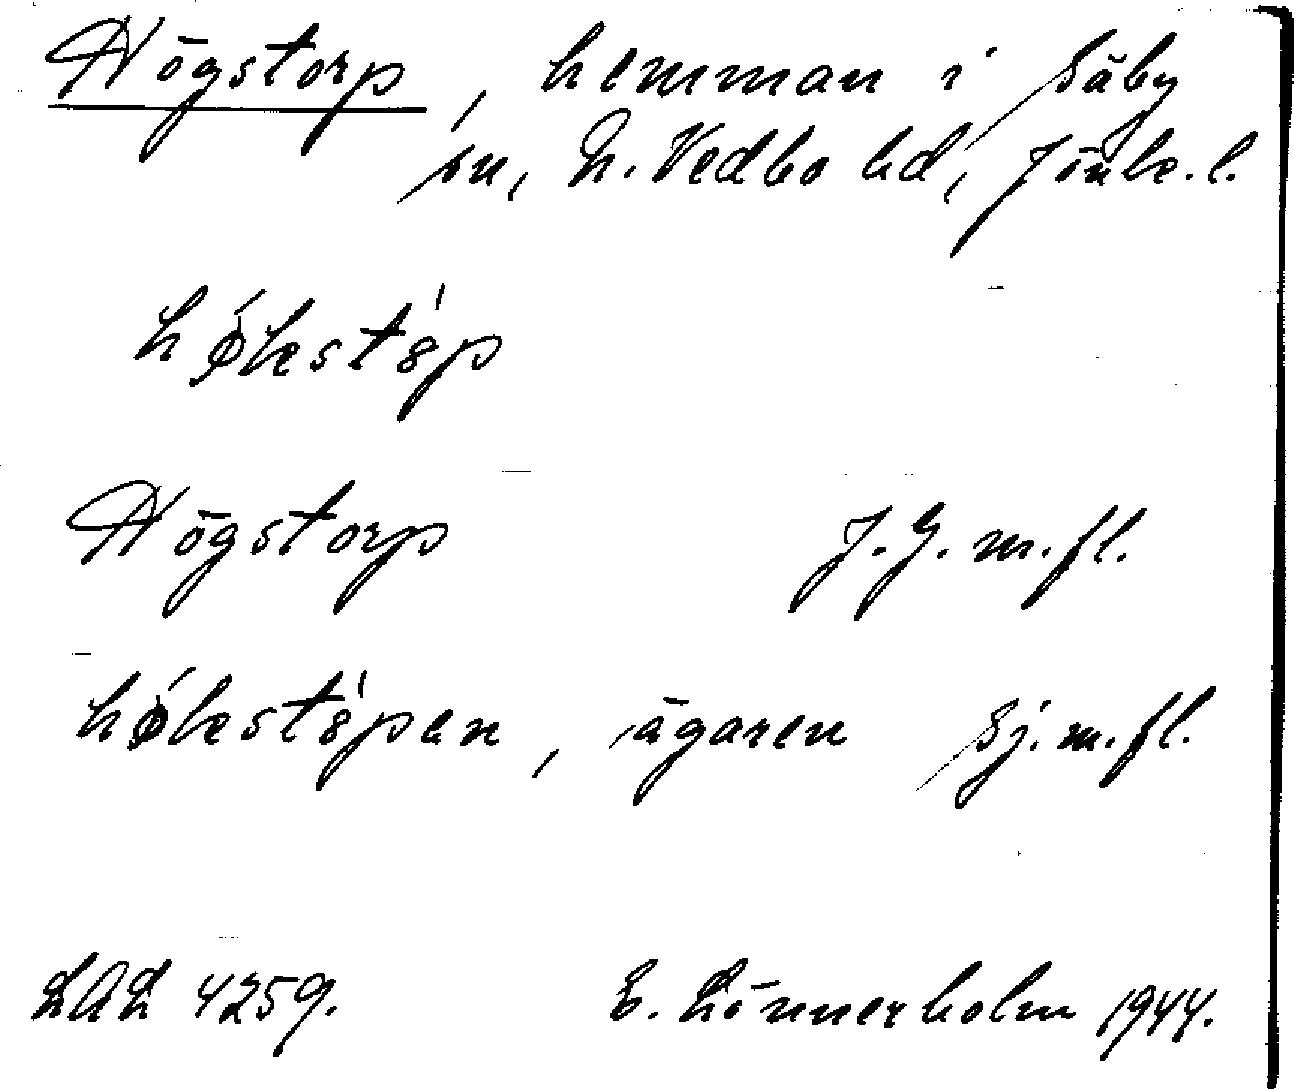 Högstorp, hemman i Säby
sn, N. Vedbo hd, Jönk. l.
hǿkstȣ̀p
Högstorp J. G. m. fl.
hǿkstȣ̀pen, ägaren Sj. m. fl.
LAL 4259. E. Lönnerholm 1944.